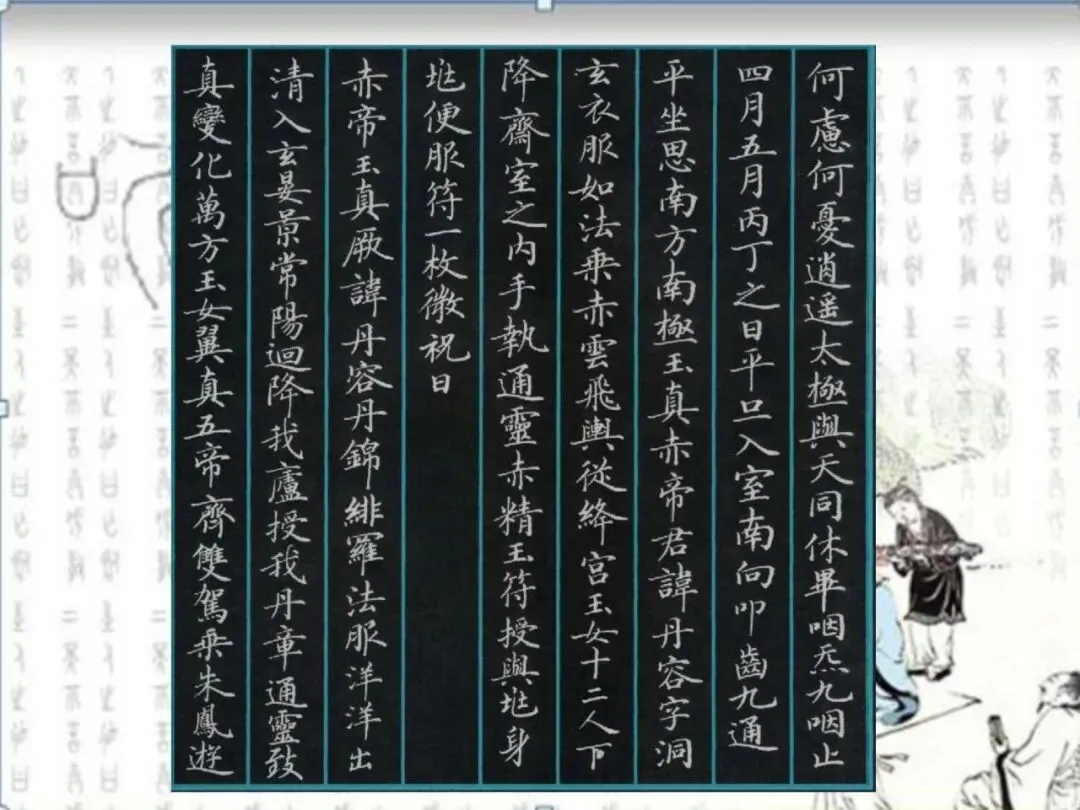 何慮何憂逍遥太極與天同休畢咽炁九咽止
四月五月丙丁之日平旦入室南向叩齒九通
平坐思南方南極玉真赤帝君諱丹容字洞
玄衣服如法乗赤雲飛輿從絳宫玉女十二人下
降齋室之内手執通靈赤精玉符授與兆身
兆便服符一枚微祝曰
赤帝玉真厥諱丹容丹錦緋羅法服洋洋出
清入玄晏景常陽迴降我廬授我丹章通靈致
真變化萬方玉女翼真五帝齊雙駕乗朱鳳遊